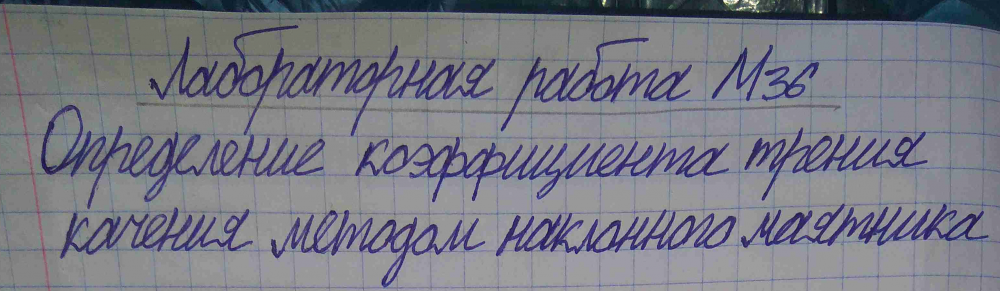 Лабораторная работа М36
Определение коэффициента трения
качения методом наклонного маятника